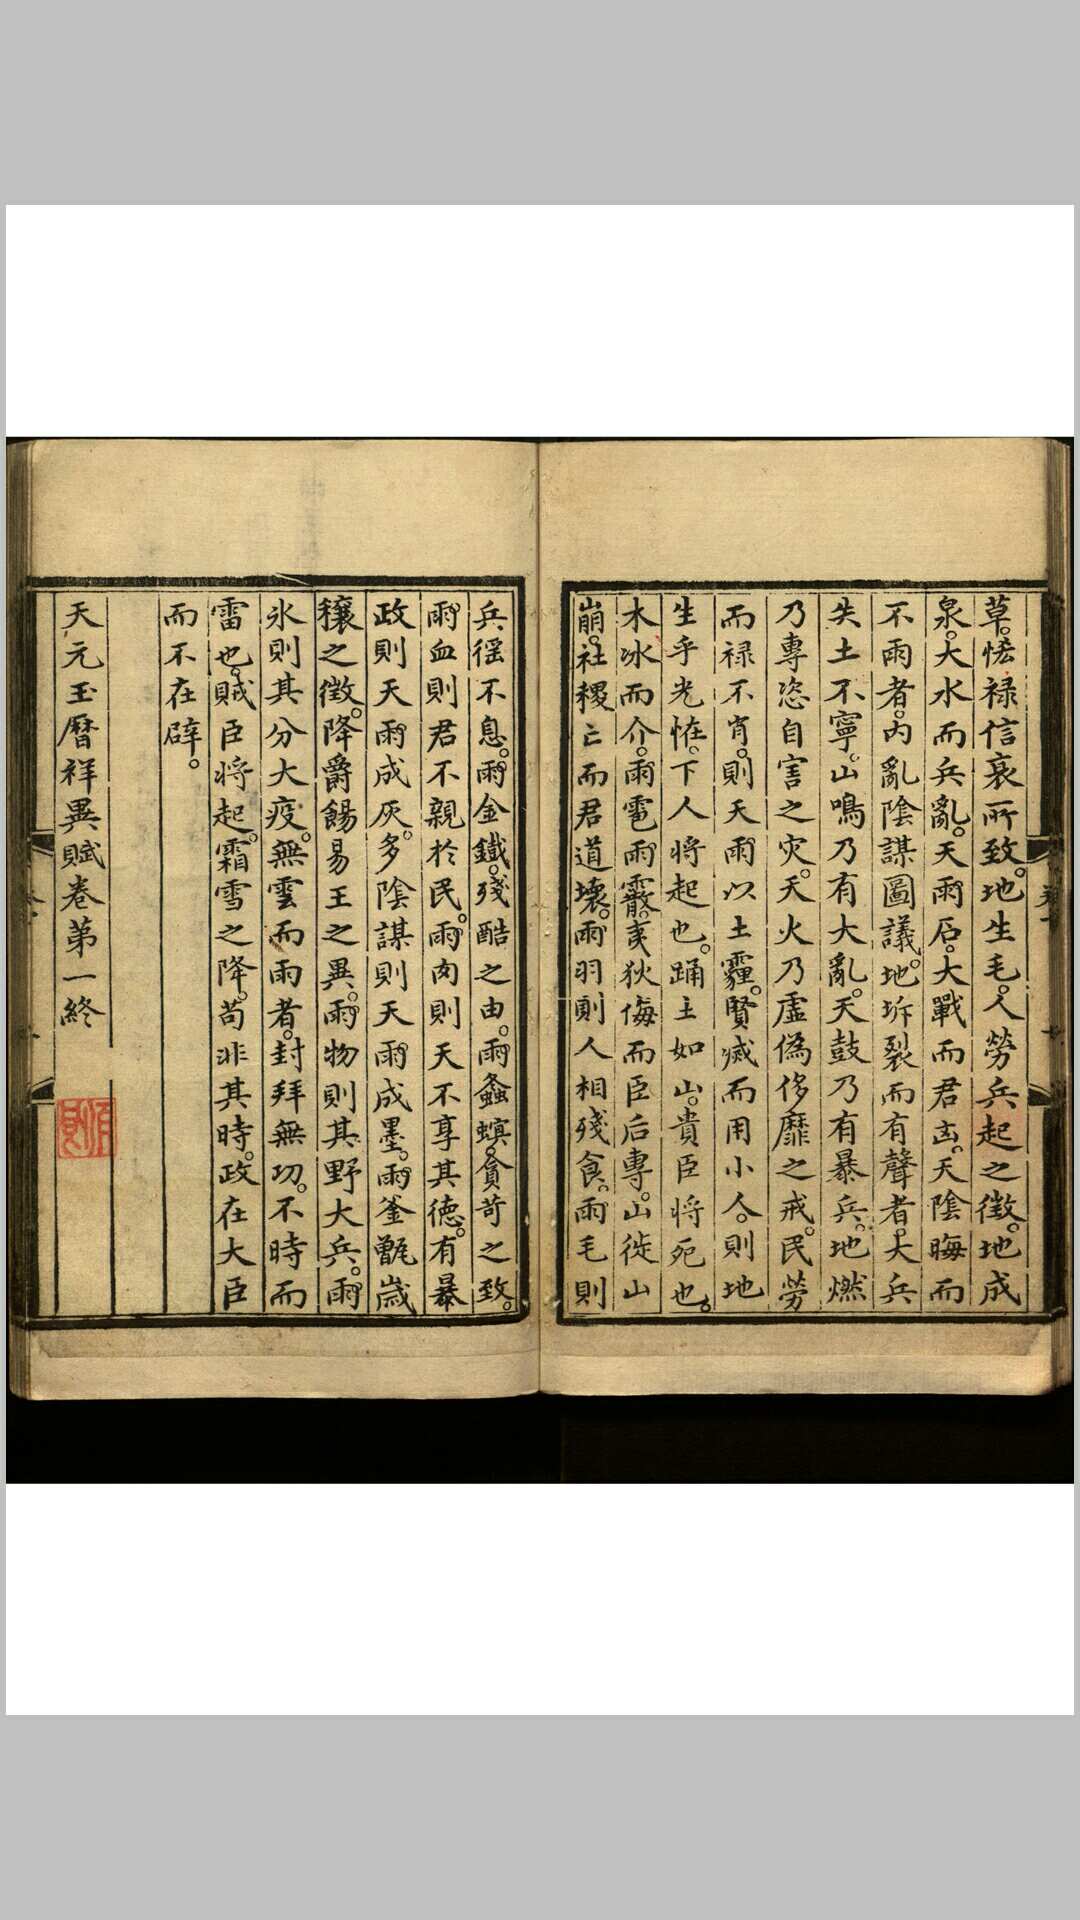 草。恡禄信衰所致。地生毛。人勞兵起之徵。地成
泉。大水而兵亂。天雨石。大戰而君亡。天陰晦而
不雨者。內亂陰謀圖議。地坼裂而有聲者。大兵
失土不寧。山鳴乃有大亂。天鼓乃有暴兵。地燃
乃專恣自害之灾。天火乃虛僞侈靡之戒。民勞
而禄不肖。則天雨以土霾。賢滅而用小人。則地
生乎光恠。下人将起也。踊土如山。貴臣将死也。
木冰而介。雨雹雨霰。夷狄侮而臣后專。山徙山
崩。社稷亡而君道壞。雨羽則人相殘食。雨毛則
兵徭不息。雨金鐵。殘酷之由。雨螽螟。貪苛之致。
雨血則君不親於民。雨肉則天不享其德。有暴
政則天雨成灰。多陰謀則天雨成墨。雨釜甑歲
穰之徵。降爵餳易王之異。雨物則其野大兵。雨
氷則其分大疫。無雲而雨者。封拜無功。不時而
雷也。賊臣将起。霜雪之降。苟非其時。政在大臣
而不在辟。
天元玉曆祥異賦卷第一終